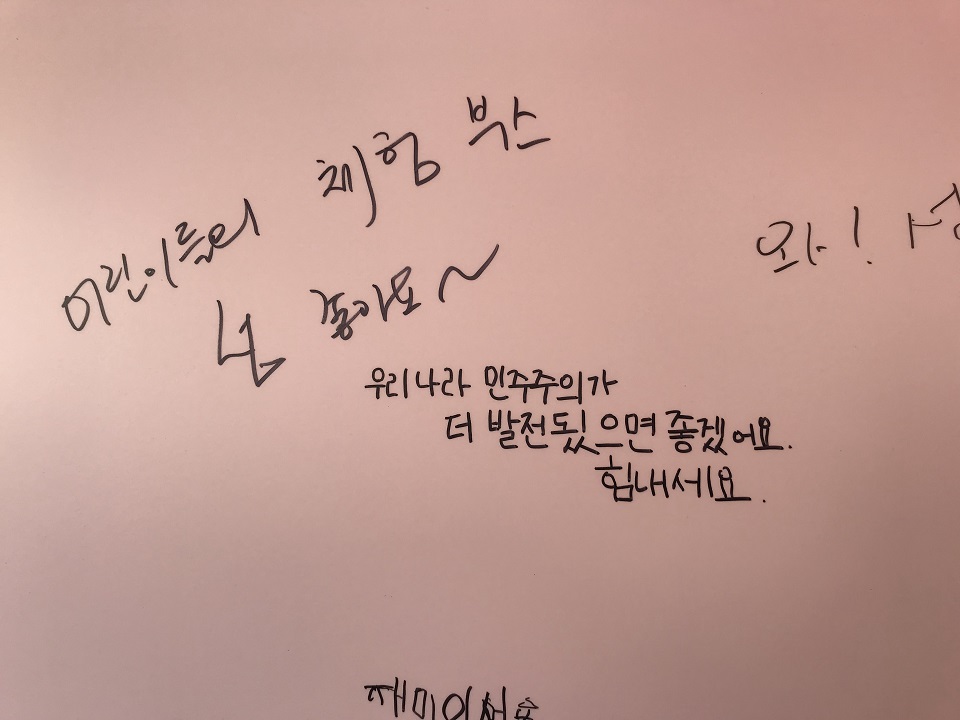 어린이들의 체험 부스
넘 좋아요~
와!
우리나라 민주주의가
더 발전됬으면 좋겠어요.
힘내세요.